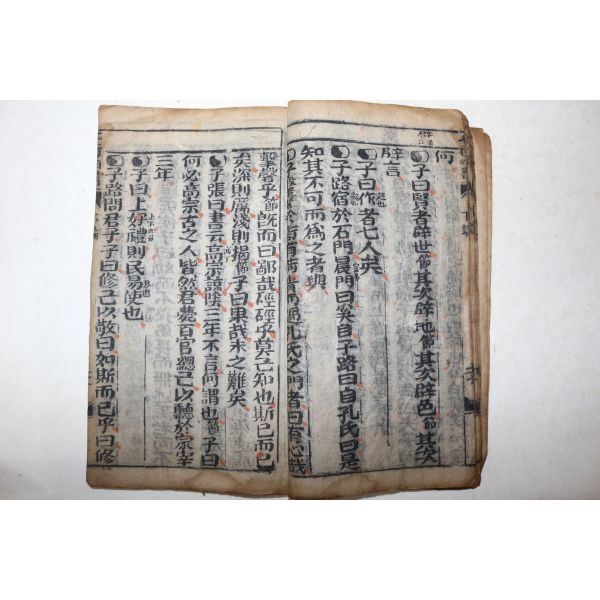 何
○子曰賢者辟世節其次辟地節其次辟色節其次
辟言
○子曰作者七人矣
○子路宿於石門晨門曰奚自子路曰自孔氏曰是
知其不可而爲之者與
○子擊磬於衛有荷而過孔氏之門者曰有心哉
擊磬乎節既而曰鄙哉硜硜乎莫己知也斯已而已
矣深則厲淺則揭節子曰果哉末之難矣
○子張曰書云高宗諒陰三年不言何謂也節子曰
何必高宗古之人皆然君薨百官總己以聽於冢宰
三年
○子曰上好禮則民易使也
○子路問君子子曰修己以敬曰如斯而已乎曰修